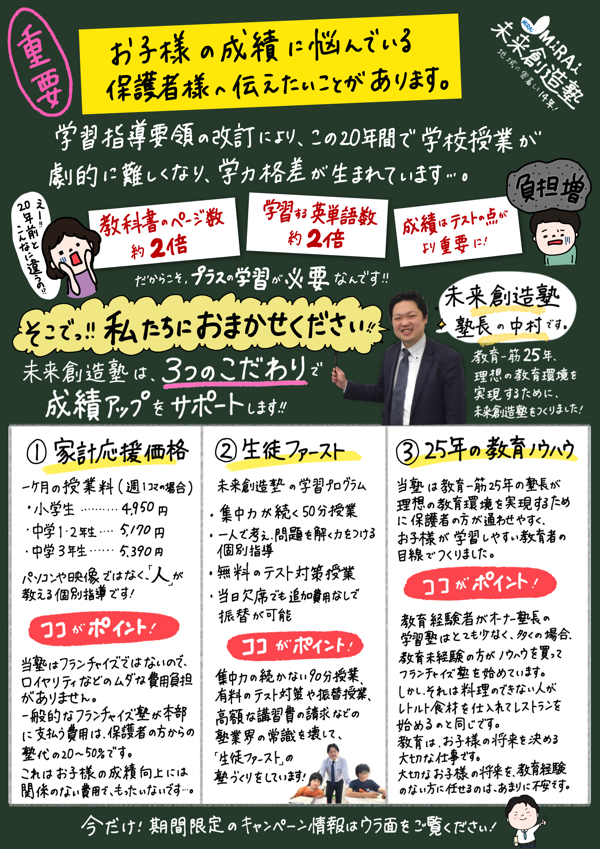 重要
お子様の成績に悩んでいる
保護者様へ伝えたいことがあります。
MIRAI
未来創造塾
地域に密着して14年!
学習指導要領の改訂により、この20年間で学校授業が
劇的に難しくなり、学力格差が生まれています…。
えー!!
20年前と
こんなに違うの!!
教科書のページ数
約2倍
学習する英単語数
約2倍
成績はテストの点が
より重要に!
負担増
だからこそ、プラスの学習が必要なんです!!
そこでっ!!私たちにおまかせください!!
未来創造塾は、3つのこだわりで
成績アップをサポートします!!
未来創造塾
塾長の中村です。
教育一筋25年、
理想の教育環境を
実現するために、
未来創造塾をつくりました!
①家計応援価格
一ヶ月の授業料(週1コマの場合)
・小学生………4,950円
・中学1・2年生….5,170円
・中学3年生……5,390円
パソコンや映像ではなく、「人」が
教える個別指導です!
ココがポイント!
当塾はフランチャイズではないので、
ロイヤリティなどのムダな費用負担
がありません。
一般的なフランチャイズ塾が本部
に支払う費用は、保護者の方からの
塾代の20〜50%です。
これはお子様の成績向上には
関係のない費用で、もったいないです…。
②生徒ファースト
未来創造塾の学習プログラム
・集中力が続く50分授業
・一人で考え、問題を解く力をつける
個別指導
・無料のテスト対策授業
・当日欠席でも追加費用なしで
振替が可能
ココがポイント!
集中力の続かない90分授業、
有料のテスト対策や振替授業、
高額な講習費の請求などの
塾業界の常識を壊して、
「生徒ファースト」の
塾づくりをしています!
③25年の教育ノウハウ
当塾は教育一筋25年の塾長が
理想の教育環境を実現するため
に保護者の方が通わせやすく、
お子様が学習しやすい教育者の
目線でつくりました。
ココがポイント!
教育経験者がオーナー塾長の
学習塾はとても少なく、多くの場合、
教育未経験の方がノウハウを買って
フランチャイズ塾を始めています。
しかし、それは料理のできない人が
レトルト食材を仕入れてレストランを
始めるのと同じです。
教育は、お子様の将来を決める
大切な仕事です。
大切なお子様の将来を、教育経験
のない方に任せるのは、あまりに不安です。
今だけ!期間限定のキャンペーン情報はウラ面をご覧ください!